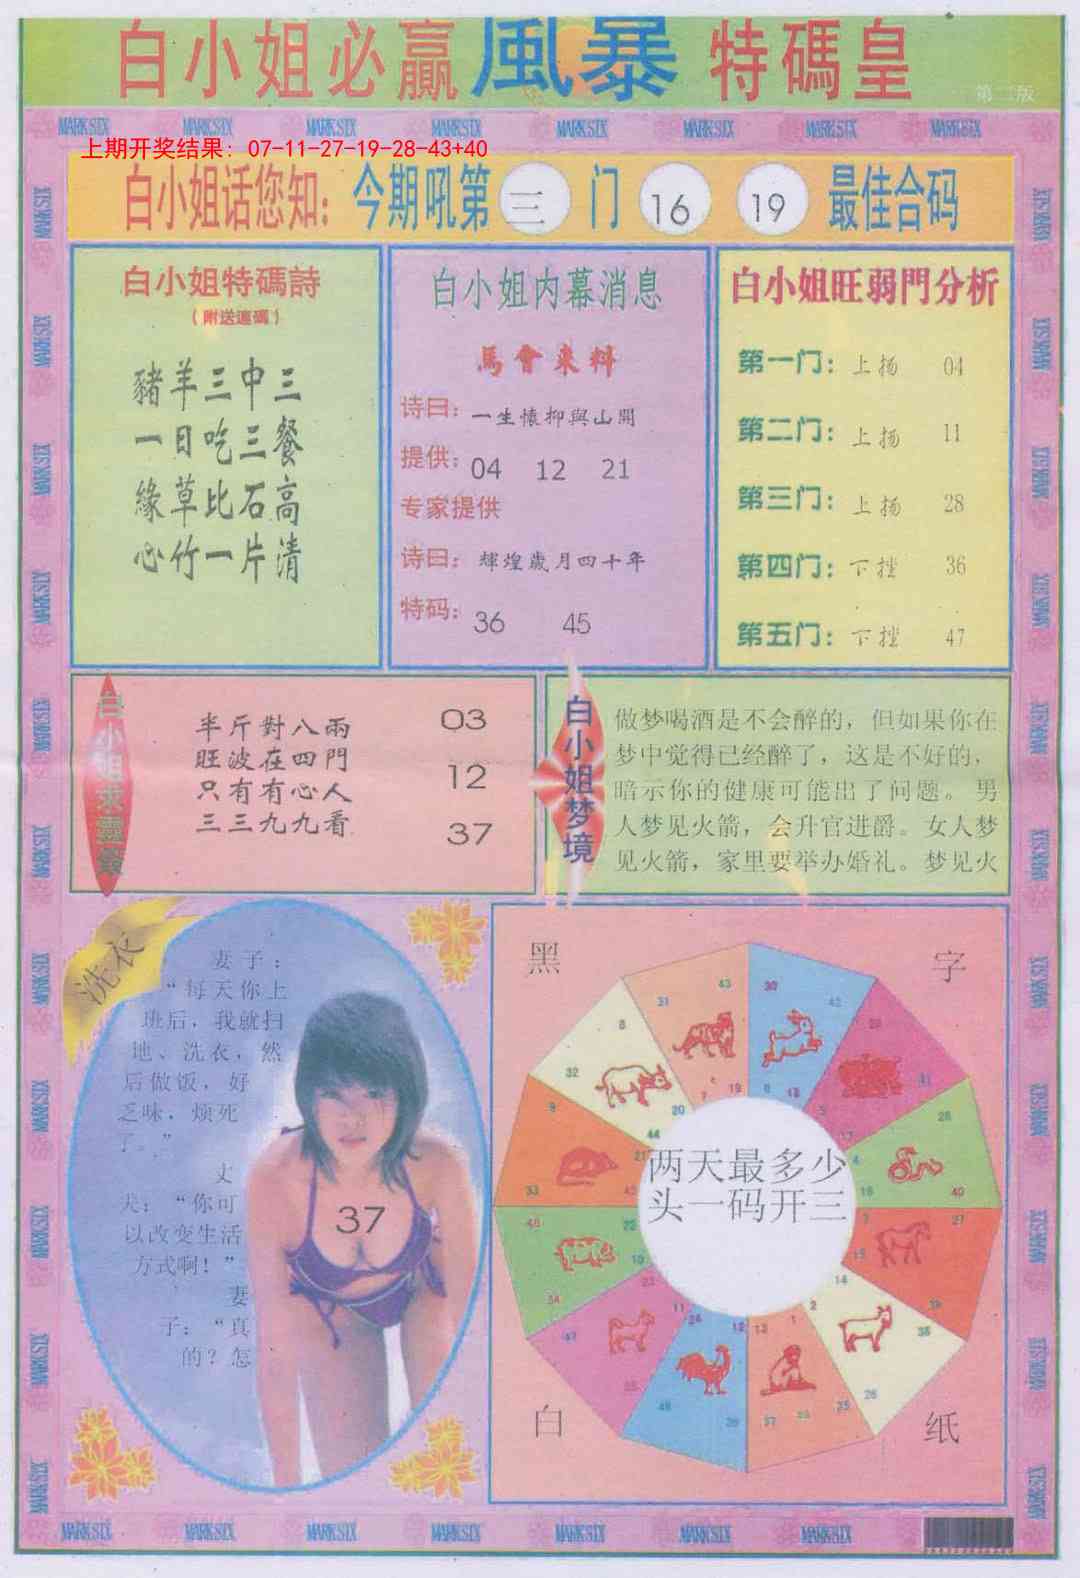 白小姐必赢風暴特碼皇
第二版
MARKSIX MARKSIX MARKSIX MARKSIX MARKSIX MARKSIX MARKSIX MARKSIX
上期开奖结果：07-11-27-19-28-43+40
白小姐话您知：今期吼第三门 16 19 最佳合码
白小姐特碼詩
（附送連碼）
豬羊三中三
一日吃三餐
緣草比石高
心竹一片清
白小姐内幕消息
馬會来料
诗曰：一生懷抑與山開
提供：04 12 21
专家提供
诗曰：輝煌歲月四十年
特码：36 45
白小姐旺弱門分析
第一门：上扬 04
第二门：上扬 11
第三门：上扬 28
第四门：下挫 36
第五门：下挫 47
半斤對八兩
旺波在四門
只有有心人
三三九九看
03
12
37
白小姐梦境
做梦喝酒是不会醉的，但如果你在
梦中觉得已经醉了，这是不好的，
暗示你的健康可能出了问题。男
人梦见火箭，会升官进爵。女人梦
见火箭，家里要举办婚礼。梦见火
洗衣
妻子：
“每天你上
班后，我就扫
地、洗衣，然
后做饭，好
乏味，烦死
了。”
丈
夫：“你可
以改变生活
方式啊！”
妻
子：“真
的？怎
37
黑
字
白
纸
两天最多少
头一码开三
MARKSIX MARKSIX MARKSIX MARKSIX MARKSIX MARKSIX MARKSIX